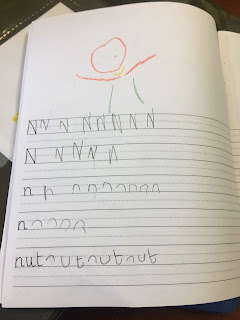 N N N N N N N N
N N N N N N
n n n n n n n n
n n n n n
nut nut nut nut